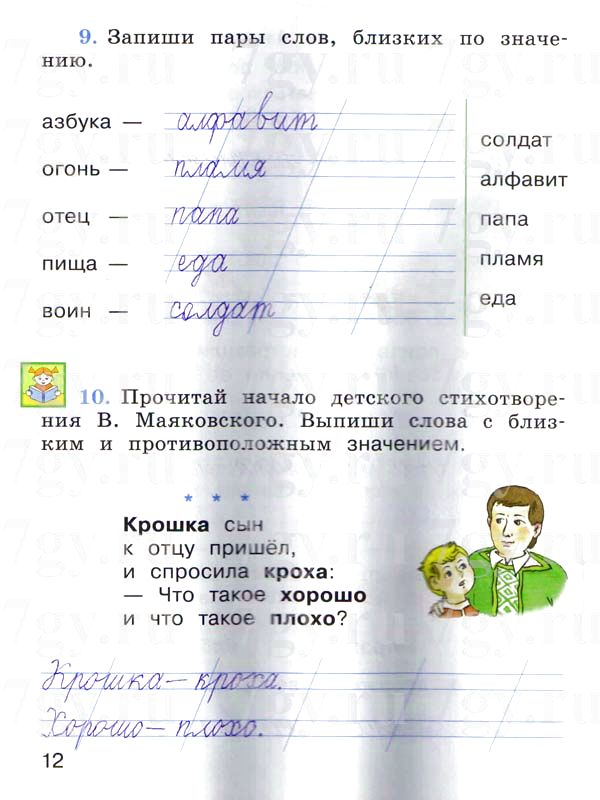 9. Запиши пары слов, близких по значе-
нию.
азбука — алфавит
огонь — пламя
отец — папа
пища — еда
воин — солдат
солдат
алфавит
папа
пламя
еда
10. Прочитай начало детского стихотворе-
ния В. Маяковского. Выпиши слова с близ-
ким и противоположным значением.
* * *
Крошка сын
к отцу пришёл,
и спросила кроха:
— Что такое хорошо
и что такое плохо?
Крошка — кроха.
Хорошо — плохо.
12